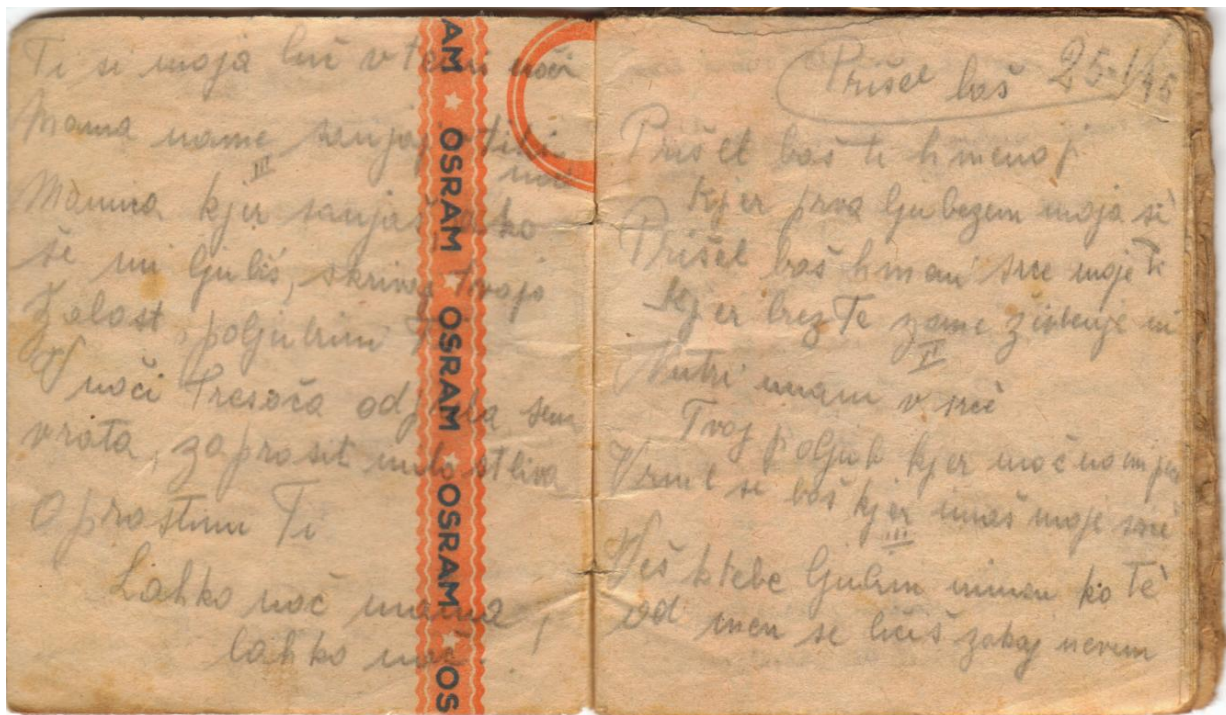 Ti si moja luč v temni noči
Mama name sanjaj
III
Mamica kjer sanjaš
še mi ljubiš, skrivaj tvojo
žalost, poljubim
V noči Tresoča odprla sem
vrata, zaprosit milostljivo
Oprostim Ti
Lahko noč mama,
lahko noč!
AM ★ OSRAM ★ OSRAM ★ OSRAM ★ OS
Prišel boš 25-1/45
Prišel boš ti k menoj
Kjer prva ljubezem moja si
Prišel boš k meni srce moje ti
Kjer brez Te zame življenje ni
II
Nutri imam v srcé
Tvoj poljub kjer močno
Vrnil se boš kjer imaš moje srcé
III
Veš k tebe ljubim nimen ko Té
od men se ločiš zakaj nevem